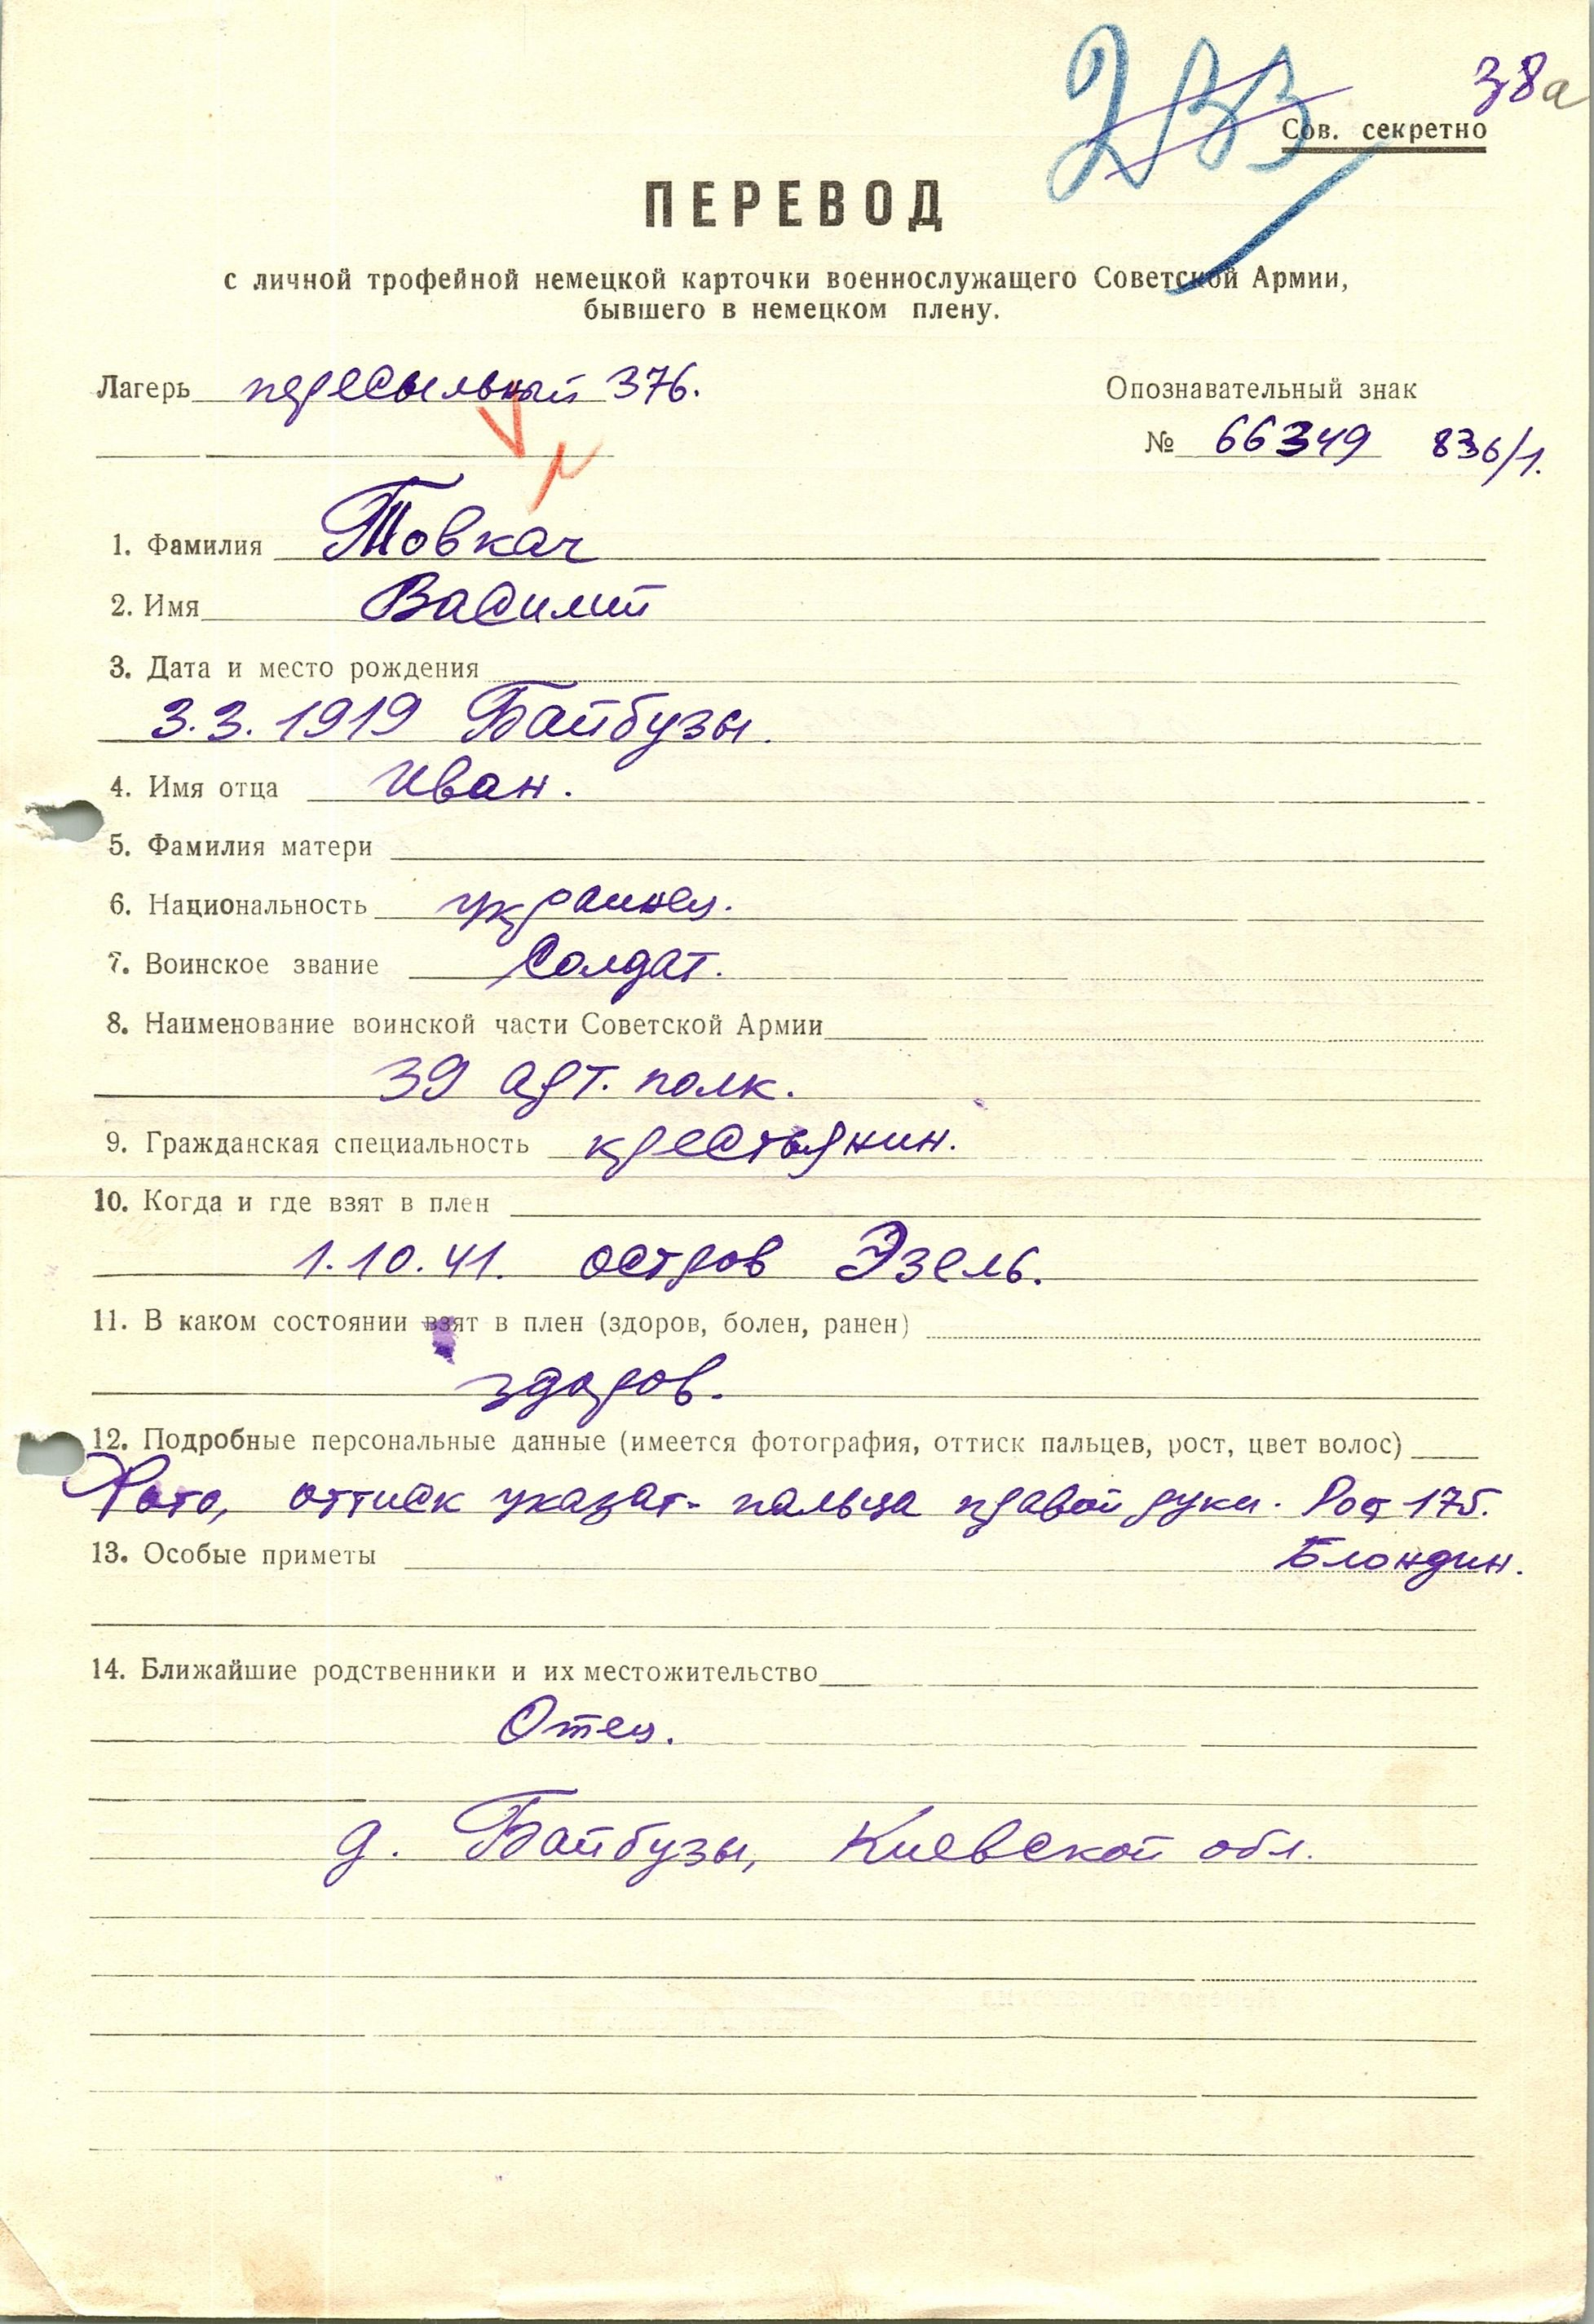 233
38а
Сов. секретно
ПЕРЕВОД
с личной трофейной немецкой карточки военнослужащего Советской Армии,
бывшего в немецком плену.
Лагерь пересыльный 376.
Опознавательный знак
№ 66349 836/1.
1. Фамилия Товкач
2. Имя Василий
3. Дата и место рождения
3.3.1919 Байбузы.
4. Имя отца Иван.
5. Фамилия матери
6. Национальность украинец.
7. Воинское звание Солдат.
8. Наименование воинской части Советской Армии
39 арт. полк.
9. Гражданская специальность крестьянин.
10. Когда и где взят в плен
1.10.41. остров Эзель.
11. В каком состоянии взят в плен (здоров, болен, ранен)
здоров.
12. Подробные персональные данные (имеется фотография, оттиск пальцев, рост, цвет волос)
Фото, оттиск указат. пальца правой руки. Рост 175.
Блондин.
13. Особые приметы
14. Ближайшие родственники и их местожительство
Отец.
д. Байбузы, Киевской обл.